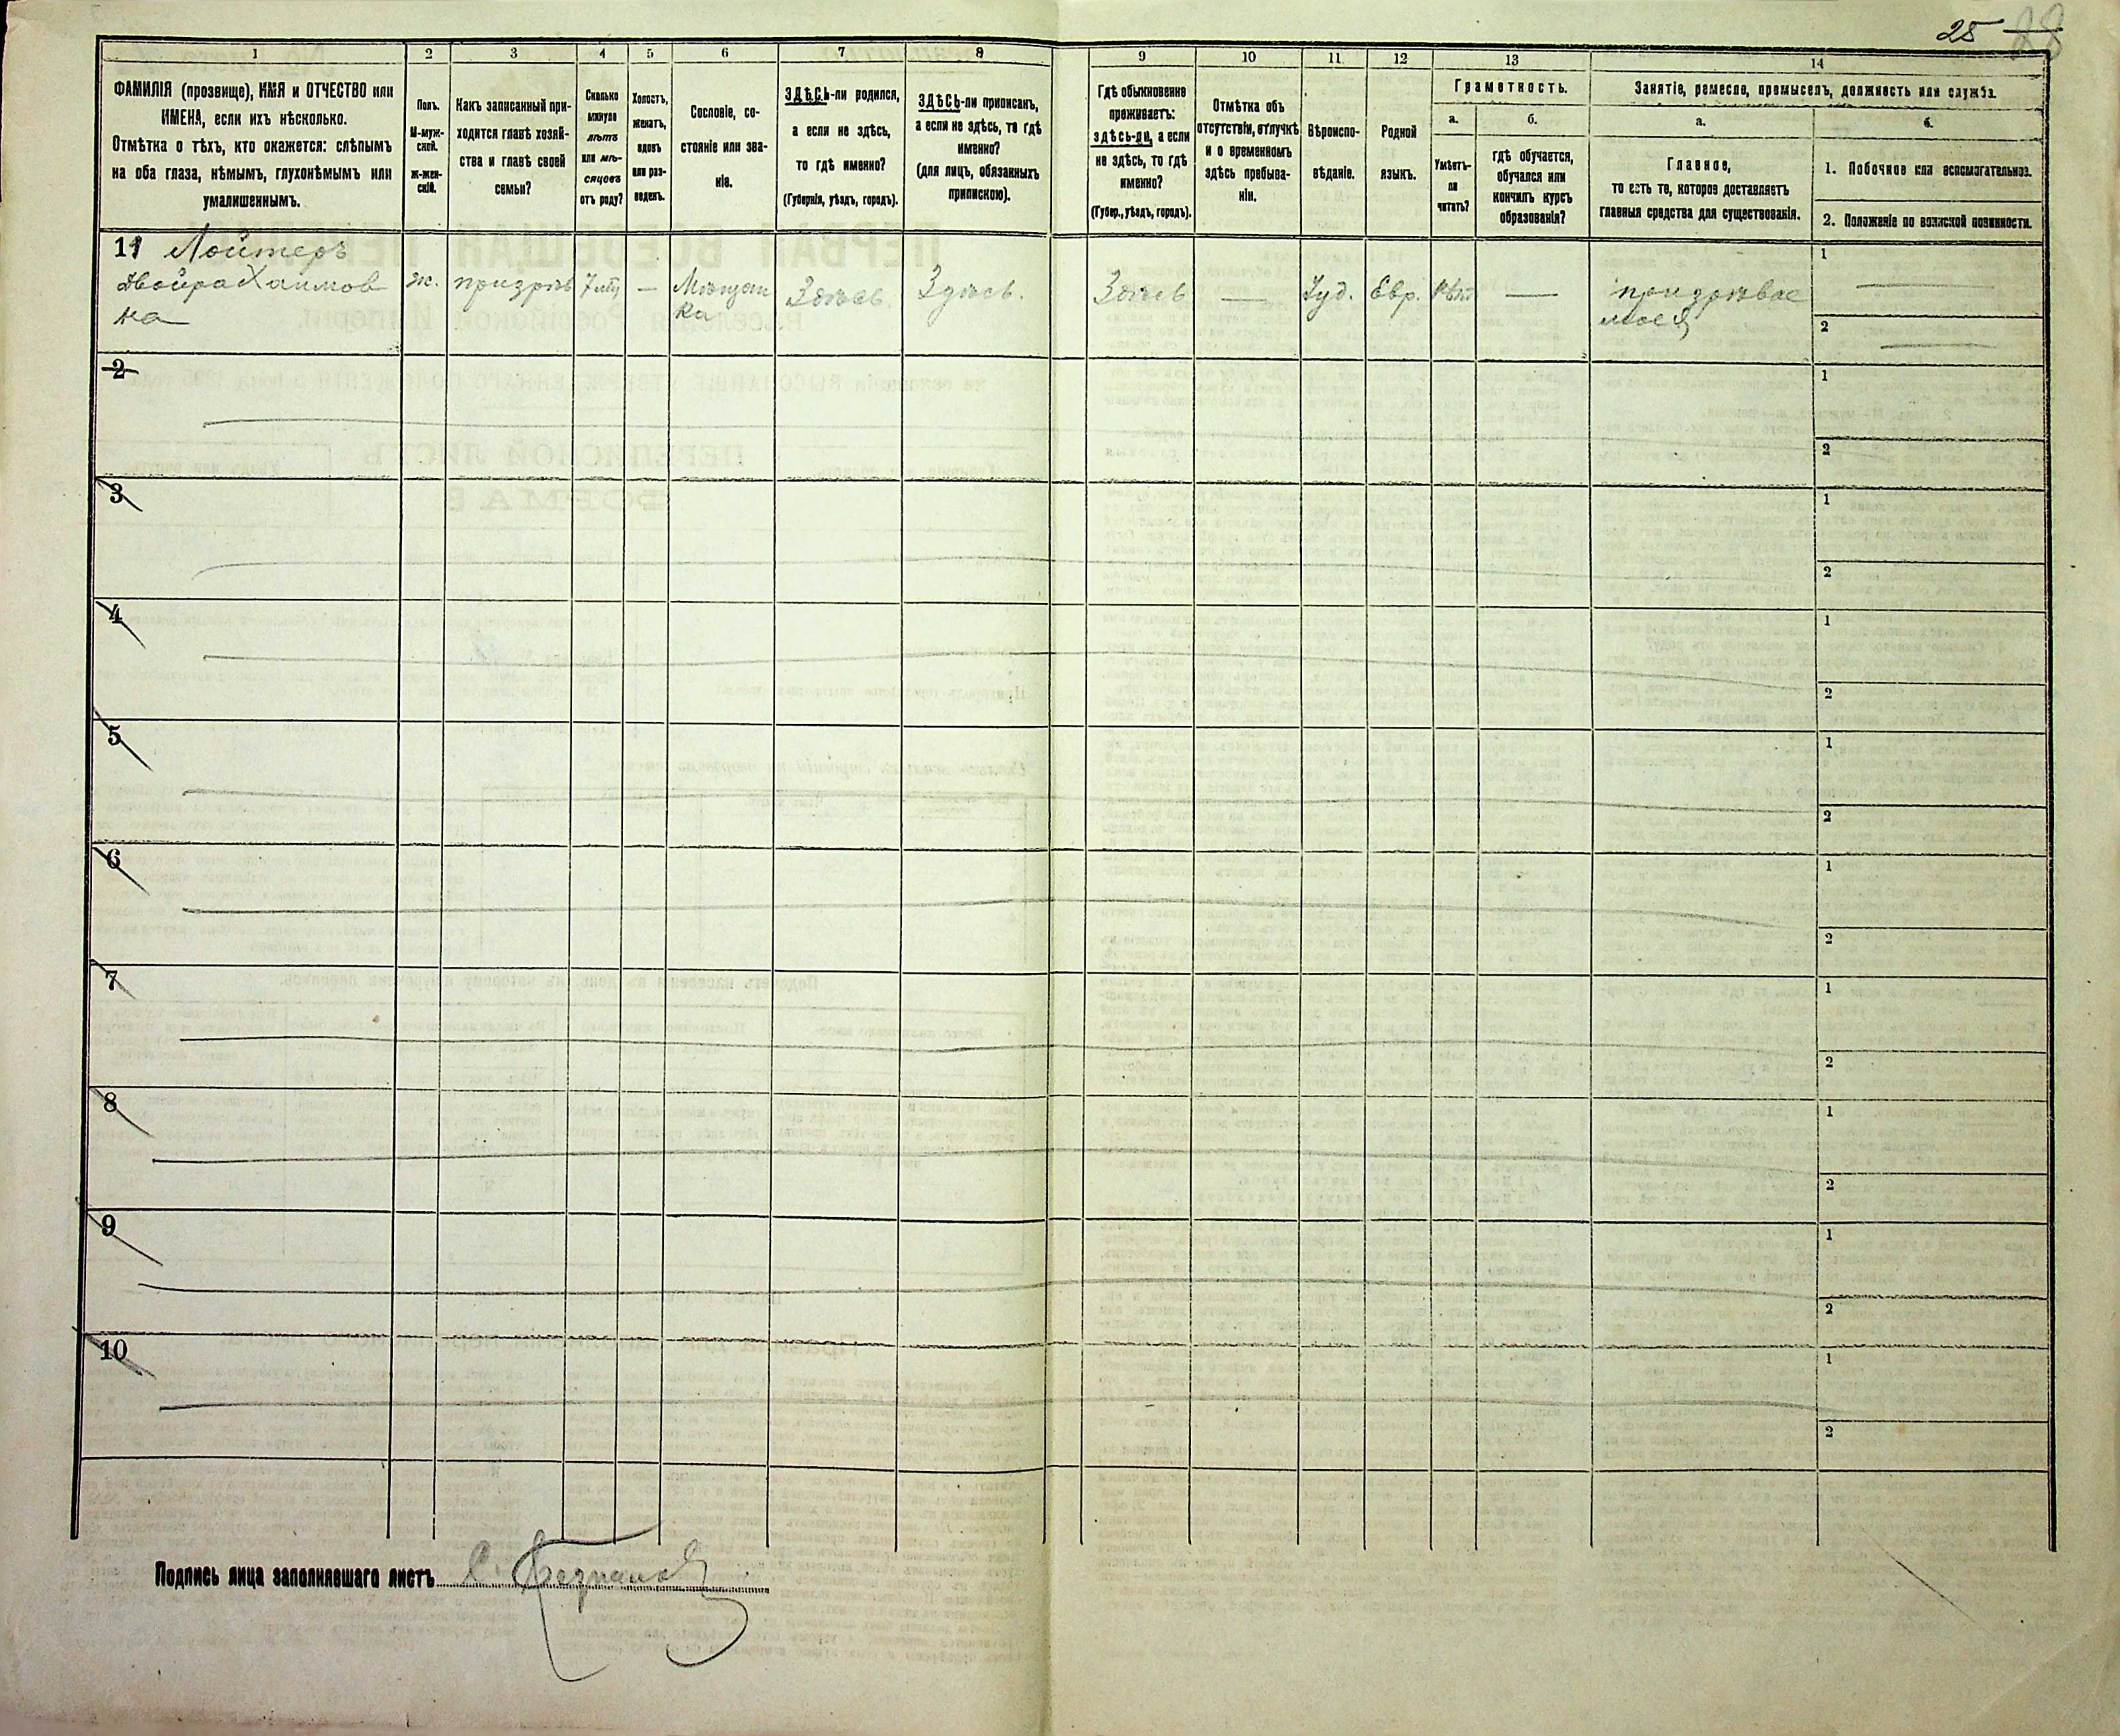 25 28
1
2
3
4
5
6
7
8
9
10
11
12
13
14
ФАМИЛІЯ (прозвище), ИМЯ и ОТЧЕСТВО или
ИМЕНА, если ихъ нѣсколько.
Отмѣтка о тѣхъ, кто окажется: слѣпымъ
на оба глаза, нѣмымъ, глухонѣмымъ или
умалишеннымъ.
Полъ.
М-муж-
ской.
ж-жен-
скій.
Какъ записанный при-
ходится главѣ хозяй-
ства и главѣ своей
семьи?
Сколько
минуло
лѣтъ
или мѣ-
сяцевъ
отъ роду?
Холостъ,
женатъ,
вдовъ
или раз-
веденъ.
Сословіе, со-
стояніе или зва-
ніе.
ЗДѢСЬ-ли родился,
а если не здѣсь,
то гдѣ именно?
(Губернія, уѣздъ, городъ).
ЗДѢСЬ-ли приписанъ,
а если не здѣсь, то гдѣ
именно?
(для лицъ, обязанныхъ
припискою).
Гдѣ обыкновенно
проживаетъ:
здѣсь-ли, а если
не здѣсь, то гдѣ
именно?
(Губер., уѣздъ, городъ).
Отмѣтка объ
отсутствіи, отлучкѣ
и о временномъ
здѣсь пребыва-
ніи.
Вѣроиспо-
вѣданіе.
Родной
языкъ.
Грамотность.
а.
Умѣетъ-
ли
читать?
б.
гдѣ обучается,
обучался или
кончилъ курсъ
образованія?
Занятіе, ремесло, промыселъ, должность или служба.
а.
Главное,
то есть то, которое доставляетъ
главныя средства для существованія.
б.
1. Побочное или вспомогательное.
2. Положеніе по воинской повинности.
11 Лойтеръ
Двойра Хаимов
на
ж.
призрѣв
7 лѣт
—
Мѣщан
ка
Здѣсь.
Здѣсь.
Здѣсь
—
Іуд.
Евр.
—
призрѣвае
мая
1
2
2
1
2
3
1
2
4
1
2
5
1
2
6
1
2
7
1
2
8
1
2
9
1
2
10
1
2
Подпись лица заполнявшаго листъ